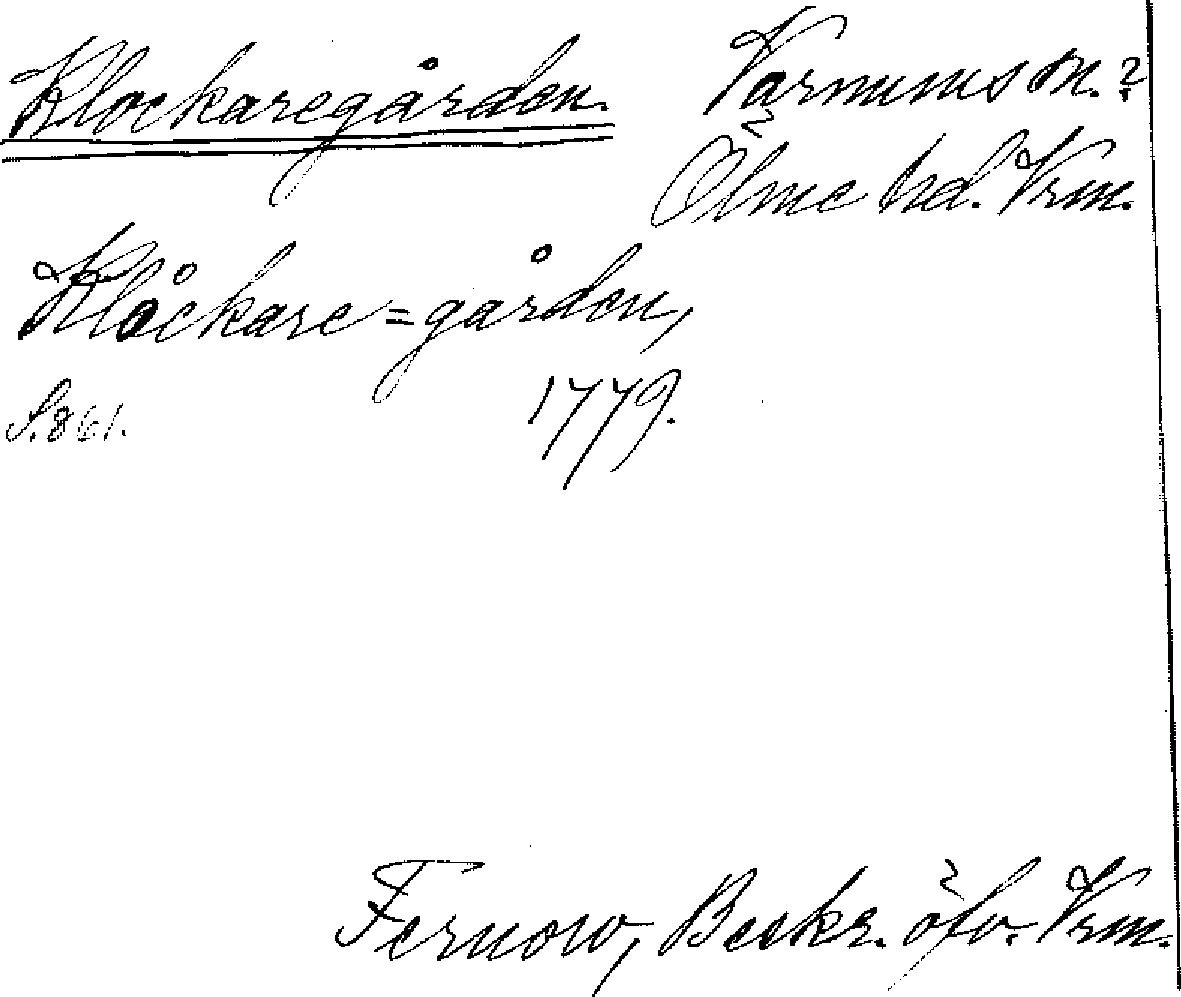 Klockaregården. Varnums sn.?
Ölme hd. Vrm.
Klåckare=gården,
S. 861. 1779.
Fernow, Beskr. öfv. Vrm.